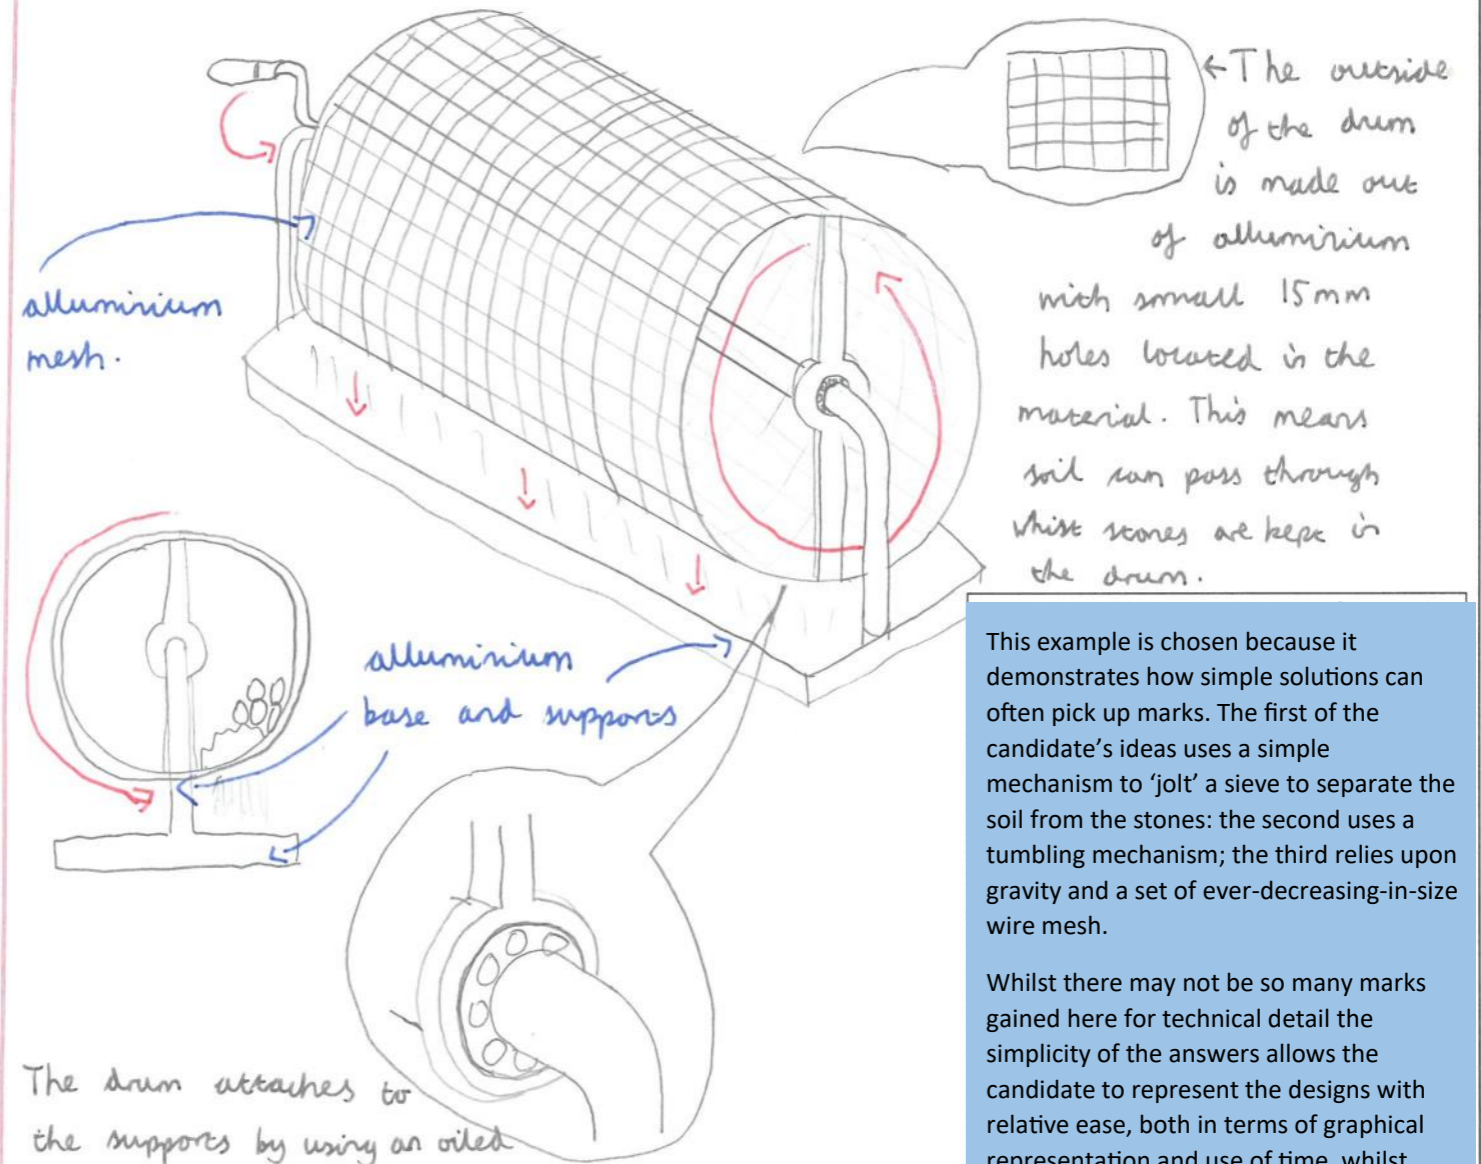 ←The outside
of the drum
is made out
of alluminium
with small 15mm
holes located in the
material. This means
soil can pass through
whist stones are kept in
the drum.
alluminium
mesh.
alluminium
base and supports
The drum attaches to
the supports by using an oiled
This example is chosen because it
demonstrates how simple solutions can
often pick up marks. The first of the
candidate’s ideas uses a simple
mechanism to ‘jolt’ a sieve to separate the
soil from the stones: the second uses a
tumbling mechanism; the third relies upon
gravity and a set of ever-decreasing-in-size
wire mesh.
Whilst there may not be so many marks
gained here for technical detail the
simplicity of the answers allows the
candidate to represent the designs with
relative ease, both in terms of graphical
representation and use of time, whilst